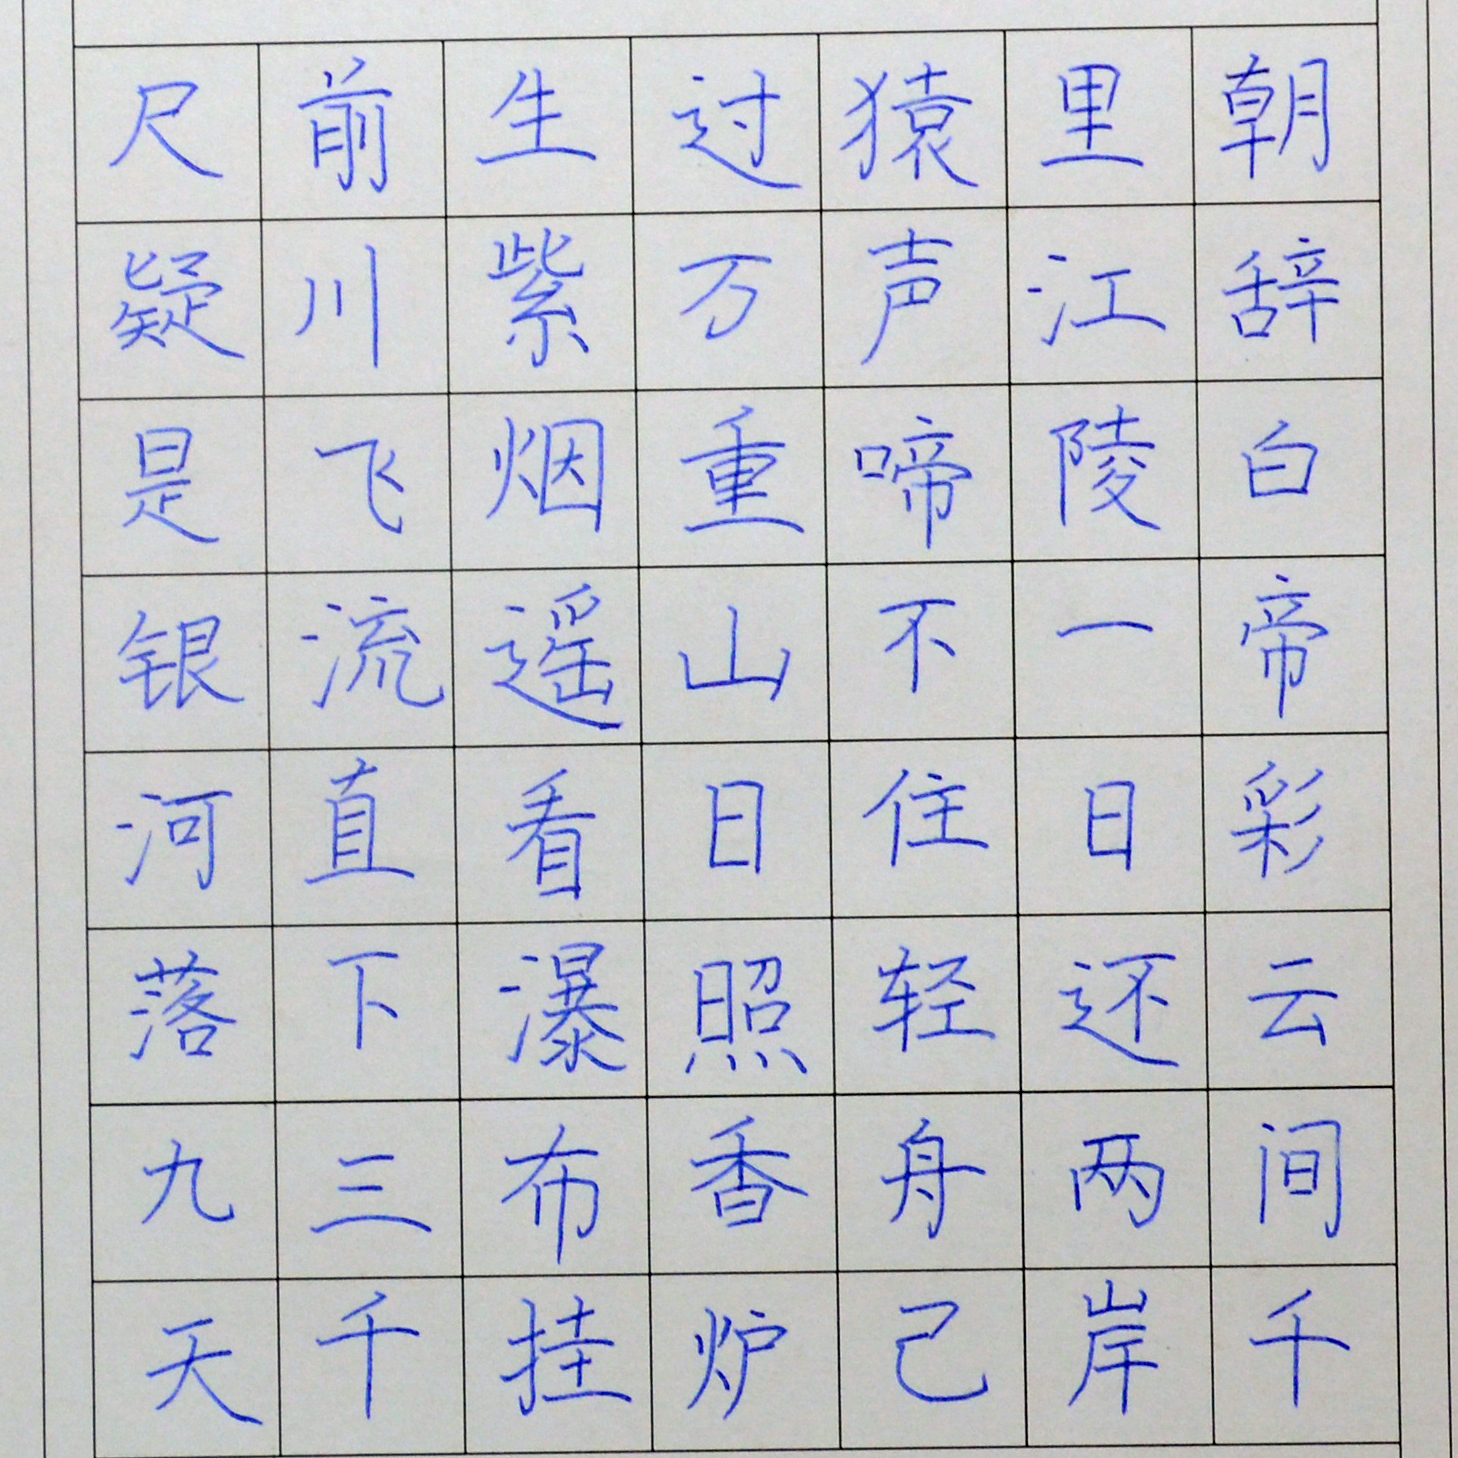 朝辞白帝彩云间千
里江陵一日还两岸
猿声啼不住轻舟已
过万重山日照香炉
生紫烟遥看瀑布挂
前川飞流直下三千
尺疑是银河落九天